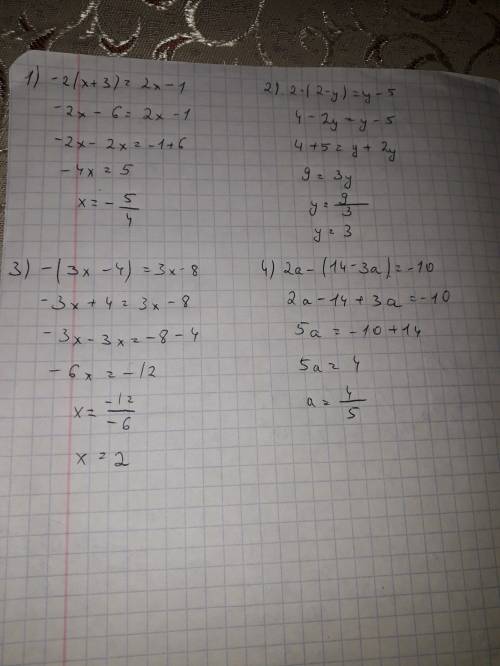 1) -2(x+3) = 2x-1
-2x - 6 = 2x - 1
-2x - 2x = -1+6
-4x = 5
x = - 5/4
2). 2·(2-y) = y - 5
4 - 2y = y - 5
4 + 5 = y + 2y
9 = 3y
y = 9/3
y = 3
3) -(3x - 4) = 3x - 8
-3x + 4 = 3x - 8
-3x - 3x = -8 - 4
-6x = -12
x = -12/-6
x = 2
4) 2a - (14 - 3a) = -10
2a - 14 + 3a = -10
5a = -10 + 14
5a = 4
a = 4/5